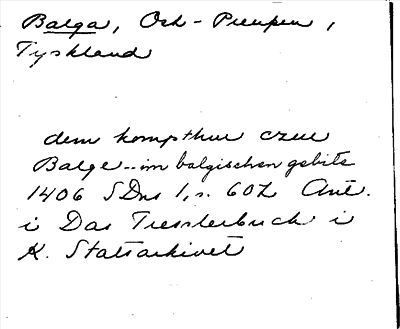 Balga, Ost-Preupen,
Tyskland
dem kompthur czur
Balge...im balgischen gebite
1406 SDns 1, s. 602 Ant.
i Das Tresslerbuch i
K. Statsarkivet